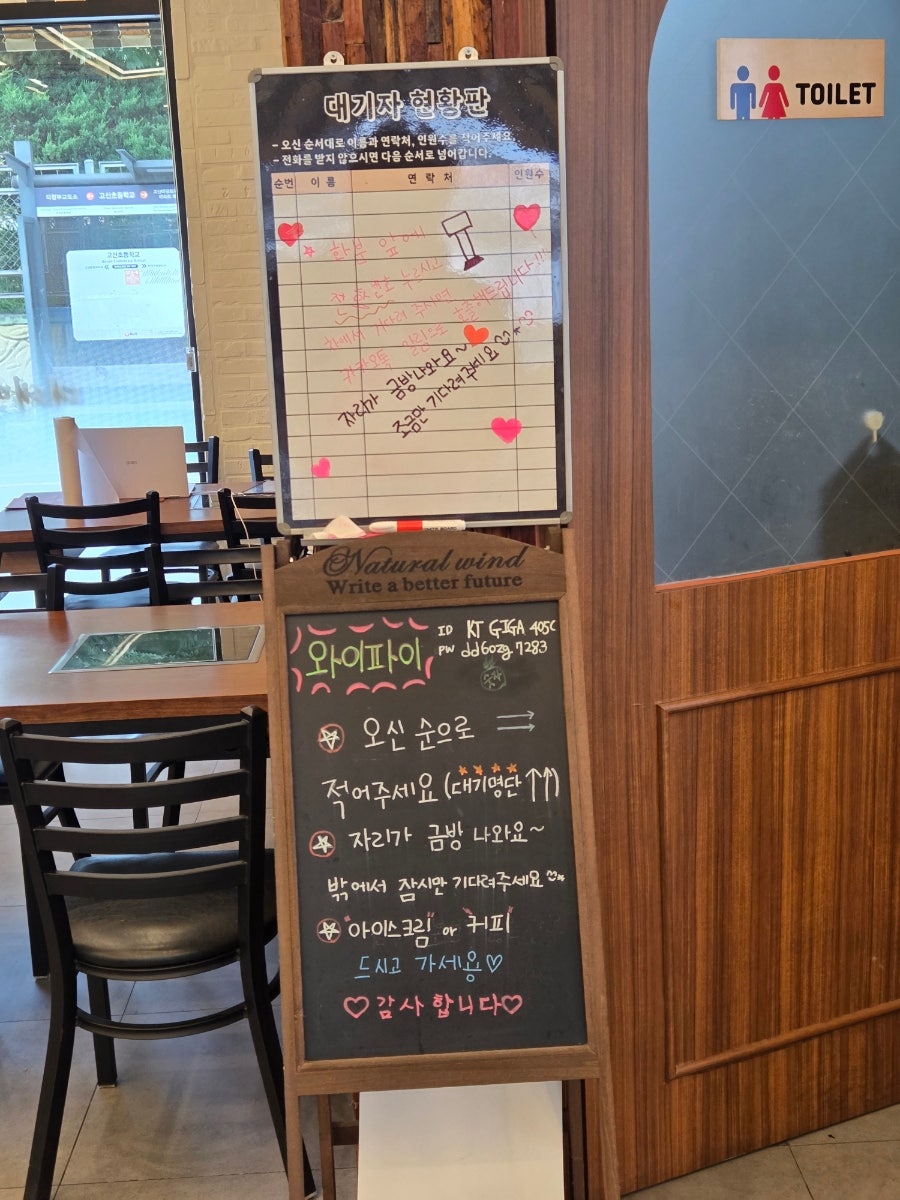 대기자 현황판
- 오신 순서대로 이름과 연락처, 인원수를 적어주세요.
- 전화를 받지 않으시면 다음 순서로 넘어갑니다.
순번 이름 연락처 인원수
화분 앞에
전화번호 누르시고
차에서 기다려 주시면
카카오톡 알림으로 호출해드립니다!!!
자리가 금방나와요~
조금만 기다려주세요
TOILET
고산초등학교
고산초등학교
Natural wind
Write a better future
와이파이
ID KT GIGA 405C
PW dd60zg7283
오신 순으로
적어주세요 (대기명단 ↑↑)
자리가 금방 나와요~
밖에서 잠시만 기다려주세요
"아이스크림" or "커피"
드시고 가세용♡
♡감사합니다♡